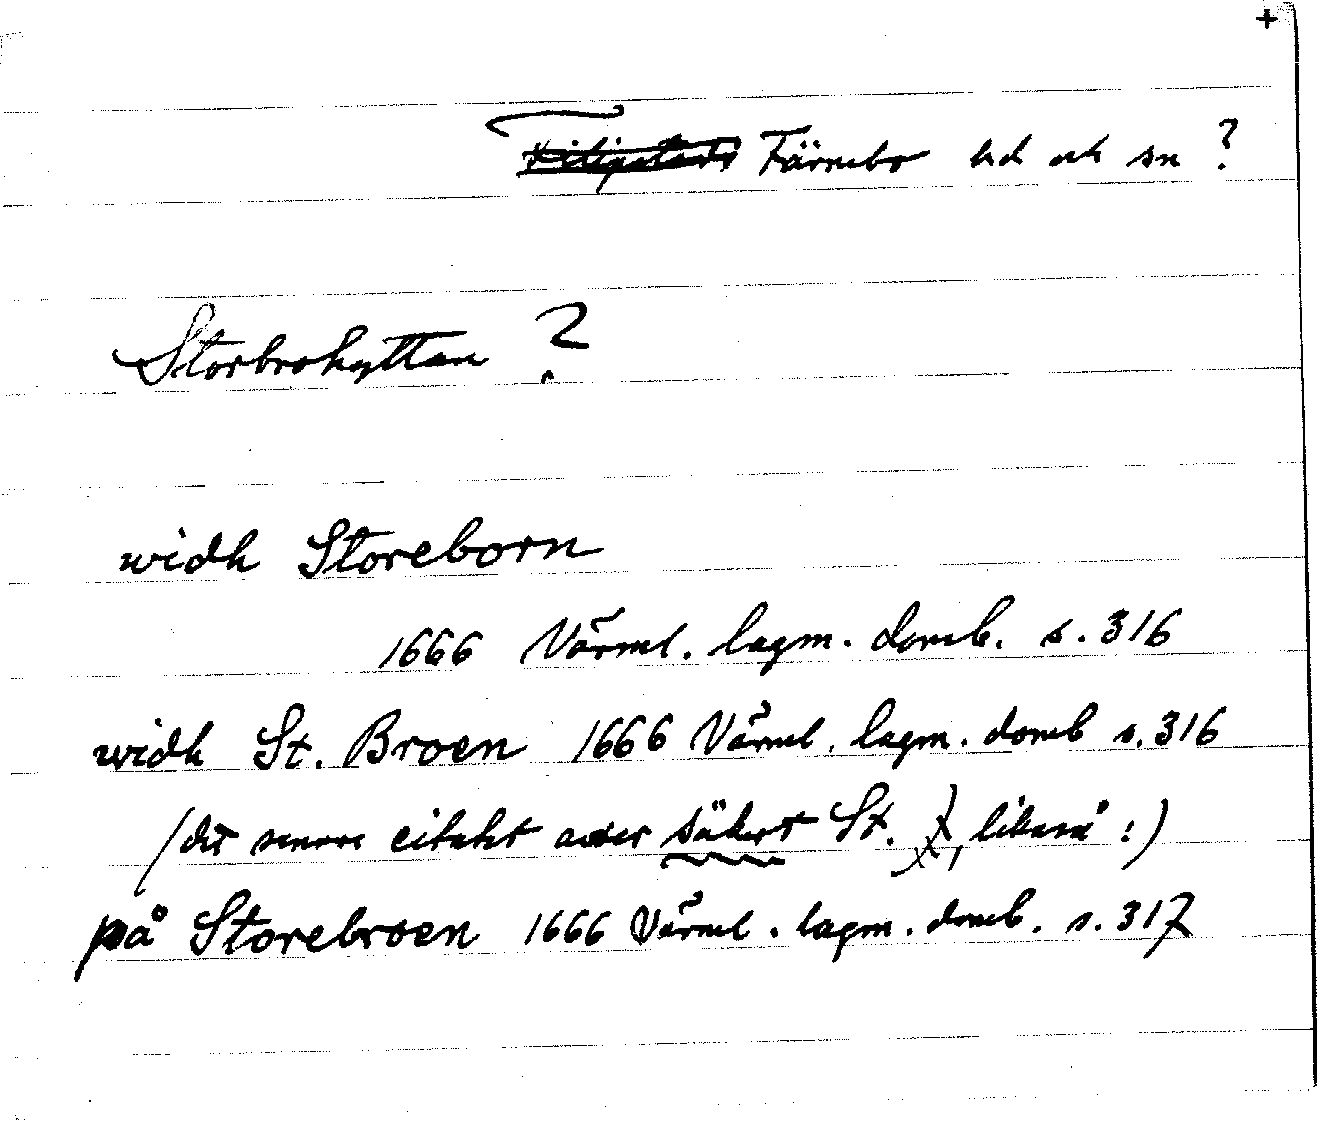 +
Färnebo hd och sn ?
Storbrohyttan ?
widh Storeborn
1666 Värml. lagm. domb. s. 316
widh St. Broen 1666 Värml. lagm. domb s. 316
(det senare citatet avser säkert St. likaså !)
på Storebroen 1666 Värml. lagm. domb. s. 317